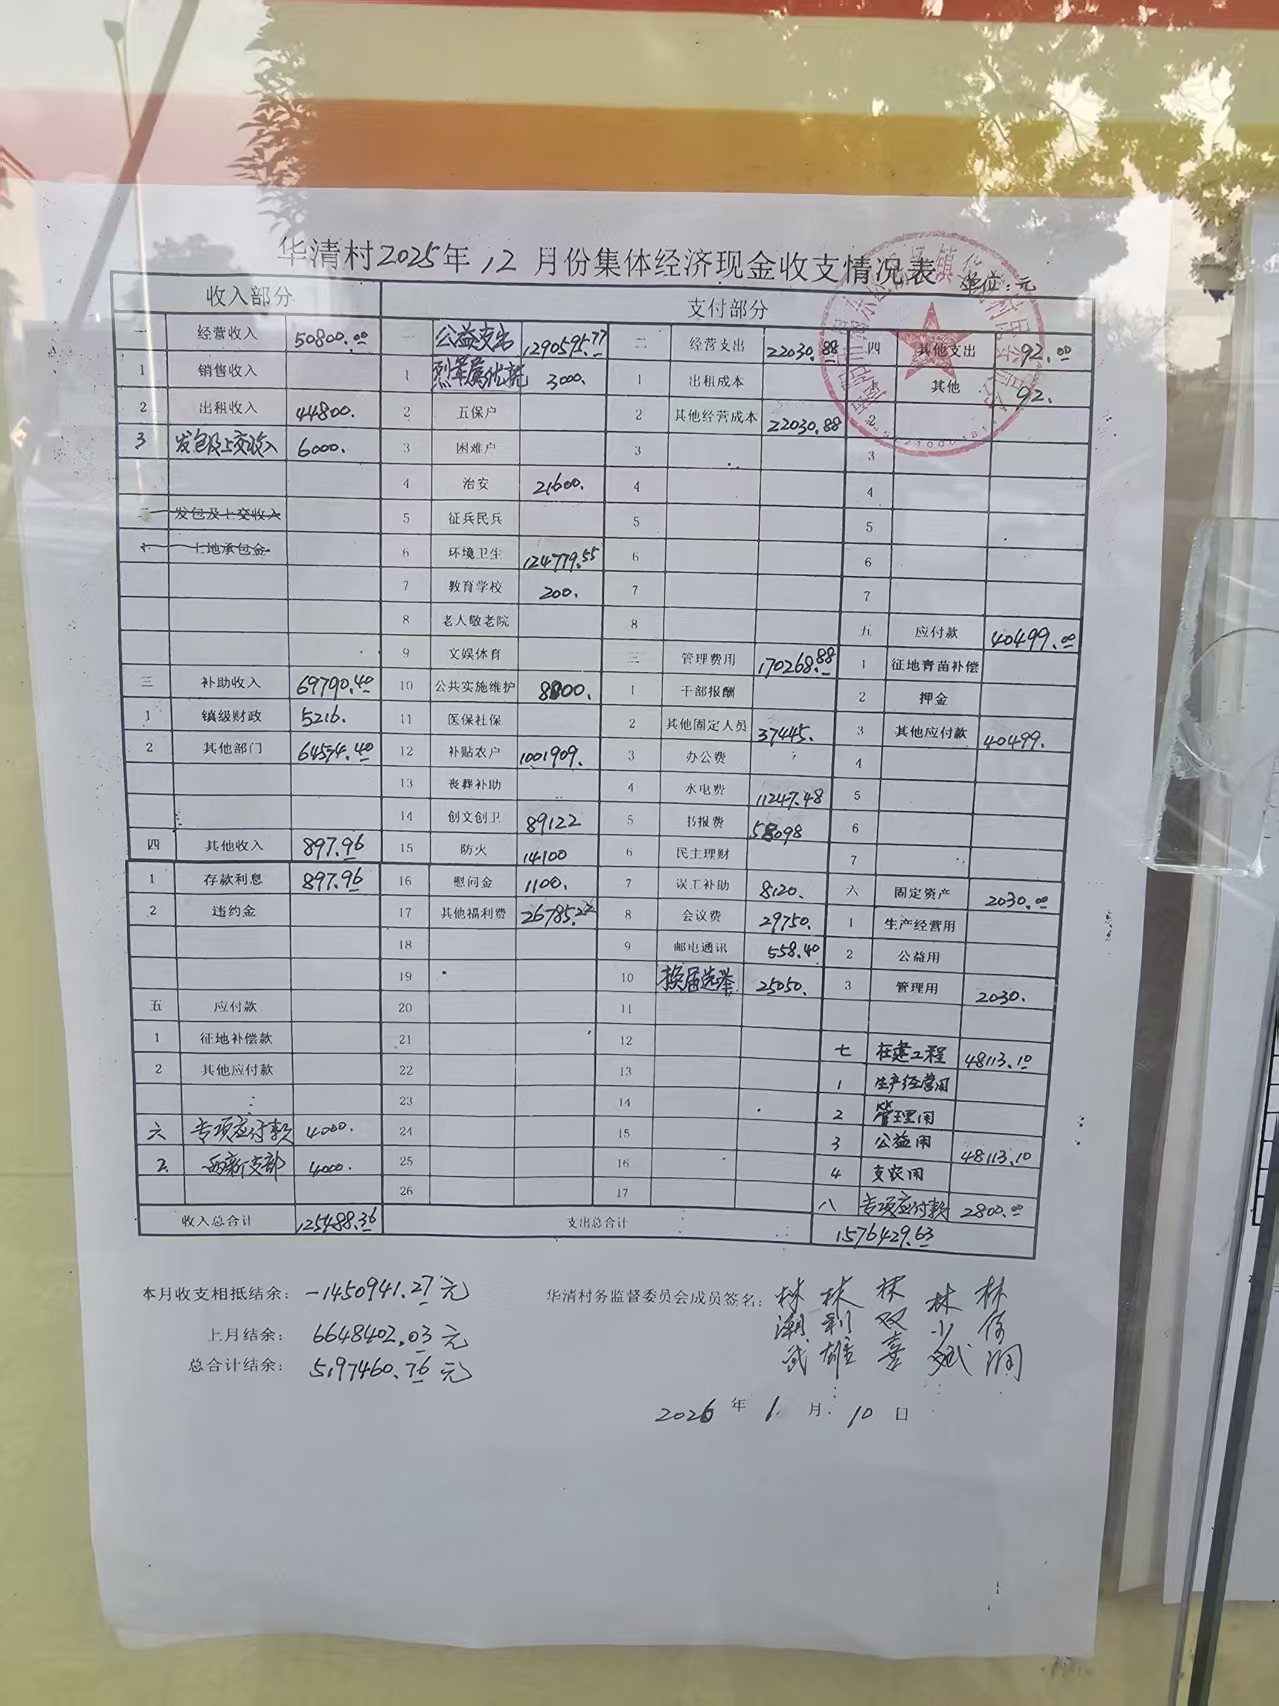 华清村2025年12月份集体经济现金收支情况表 单位:元
收入部分 支付部分
一 经营收入 50800.00 一 公益支出 1290595.77 二 经营支出 22030.88 四 其他支出 92.00
1 销售收入 1 烈军属优抚 3000. 1 出租成本 1 其他 92.
2 出租收入 44800. 2 五保户 2 其他经营成本 22030.88 2
3 发包及上交收入 6000. 3 困难户 3 3
4 治安 21600. 4 4
二 发包及上交收入 5 征兵民兵 5 5
1 土地承包金 6 环境卫生 124779.55 6 6
7 教育学校 200. 7 7
8 老人敬老院 8 五 应付款 40499.00
9 文娱体育 三 管理费用 170268.88 1 征地青苗补偿
三 补助收入 69790.40 10 公共实施维护 8800. 1 干部报酬 2 押金
1 镇级财政 5216. 11 医保社保 2 其他固定人员 37445. 3 其他应付款 40499.
2 其他部门 64574.40 12 补贴农户 1001909. 3 办公费 4
13 丧葬补助 4 水电费 11247.48 5
14 创文创卫 89122 5 书报费 58098 6
四 其他收入 897.96 15 防火 14100 6 民主理财 7
1 存款利息 897.96 16 慰问金 1100. 7 误工补助 8120. 六 固定资产 2030.00
2 违约金 17 其他福利费 26785.22 8 会议费 29750. 1 生产经营用
18 9 邮电通讯 558.40 2 公益用
19 10 换届选举 25050. 3 管理用 2030.
五 应付款 20 11
1 征地补偿款 21 12 七 在建工程 48113.10
2 其他应付款 22 13 1 生产经营用
23 14 2 管理用
六 专项应付款 4000. 24 15 3 公益用 48113.10
2. 西新支部 4000. 25 16 4 支农用
26 17 八 专项应付款 2800.00
收入总合计 125488.36 支出总合计 1576429.63
本月收支相抵结余: -1450941.27元 华清村务监督委员会成员签名: 林潮武 林彩雄 林双喜 林小斌
上月结余: 6648402.03元
总合计结余: 5197460.76元
2026年1月10日